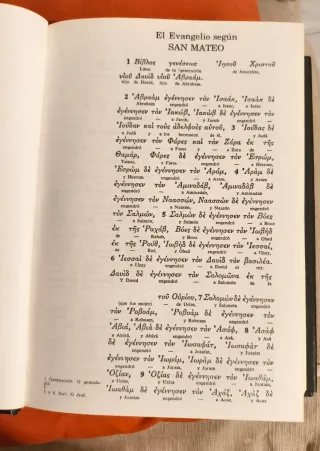 El Evangelio según
SAN MATEO
1 Βίβλος γενέσεως Ἰησοῦ Χριστοῦ
Libro de la generación de Jesucristo,
υἱοῦ Δαυὶδ υἱοῦ Ἀβραάμ.
hijo de David, hijo de Abraham.
2 Ἀβραὰμ ἐγέννησεν τὸν Ἰσαάκ, Ἰσαὰκ δὲ
Abraham engendró — a Isaac, y Isaac
ἐγέννησεν τὸν Ἰακώβ, Ἰακὼβ δὲ ἐγέννησεν τὸν
engendró — a Jacob, y Jacob engendró —
Ἰούδαν καὶ τοὺς ἀδελφοὺς αὐτοῦ, 3 Ἰούδας δὲ
a Judá y a los hermanos de él, y Judá
ἐγέννησεν τὸν Φάρες καὶ τὸν Ζάρα ἐκ τῆς
engendró — a Fares y — a Zara de —
Θαμάρ, Φάρες δὲ ἐγέννησεν τὸν Ἑσρώμ,
Tamar, y Fares engendró — a Hezrom,
Ἑσρὼμ δὲ ἐγέννησεν τὸν Ἀράμ, 4 Ἀρὰμ δὲ
y Hezrom engendró — a Aram, y Aram
ἐγέννησεν τὸν Ἀμιναδάβ, Ἀμιναδὰβ δὲ
engendró — a Aminadab, y Aminadab
ἐγέννησεν τὸν Ναασσών, Ναασσὼν δὲ ἐγέννησεν
engendró — a Naasón, y Naasón engendró
τὸν Σαλμών, 5 Σαλμὼν δὲ ἐγέννησεν τὸν Βόες
— a Salmón, y Salmón engendró — a Booz
ἐκ τῆς Ῥαχάβ, Βόες δὲ ἐγέννησεν τὸν Ἰωβὴδ
de — Rahab, y Booz engendró — a Obed
ἐκ τῆς Ῥούθ, Ἰωβὴδ δὲ ἐγέννησεν τὸν Ἰεσσαί,
de — Rut, y Obed engendró — a Isay,
6 Ἰεσσαὶ δὲ ἐγέννησεν τὸν Δαυὶδ τὸν βασιλέα.
y Isay engendró — a David el rey.
Δαυὶδ δὲ ἐγέννησεν τὸν Σολομῶνα ἐκ τῆς
y David engendró — a Salomón de la
τοῦ Οὐρίου, 7 Σολομὼν δὲ ἐγέννησεν
(que fue mujer) de Urías, y Salomón engendró
τὸν Ῥοβοάμ, Ῥοβοὰμ δὲ ἐγέννησεν τὸν
— a Roboam, y Roboam engendró —
Ἀβιά, Ἀβιὰ δὲ ἐγέννησεν τὸν Ἀσάφ, 8 Ἀσὰφ
a Abiyá, y Abiyá engendró — a Asaf, y Asaf
δὲ ἐγέννησεν τὸν Ἰωσαφάτ, Ἰωσαφὰτ δὲ
engendró — a Josafat, y Josafat
ἐγέννησεν τὸν Ἰωράμ, Ἰωρὰμ δὲ ἐγέννησεν τὸν
engendró — a Joram, y Joram engendró —
Ὀζίαν, 9 Ὀζίας δὲ ἐγέννησεν τὸν Ἰωαθάμ,
a Uzías, y Uzías engendró — a Jotam,
Ἰωαθὰμ δὲ ἐγέννησεν τὸν Ἀχάζ, Ἀχὰζ δὲ
y Jotam engendró — a Acaz, y Acaz
1. GENERACIÓN. O
O Jesé.